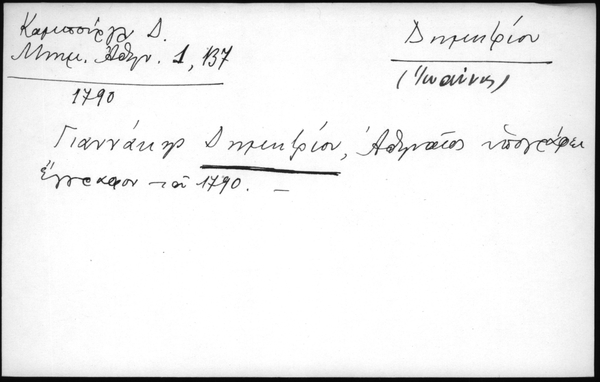 Καμπούρογλ Δ.
Μνημ. Ἀθην. 1, 137
1790
Δημητρίου
(Ἰωάννης)
Γιαννάκης Δημητρίου, Ἀθηναῖος ὑπογράφει
ἔγγραφον τοῦ 1790. —